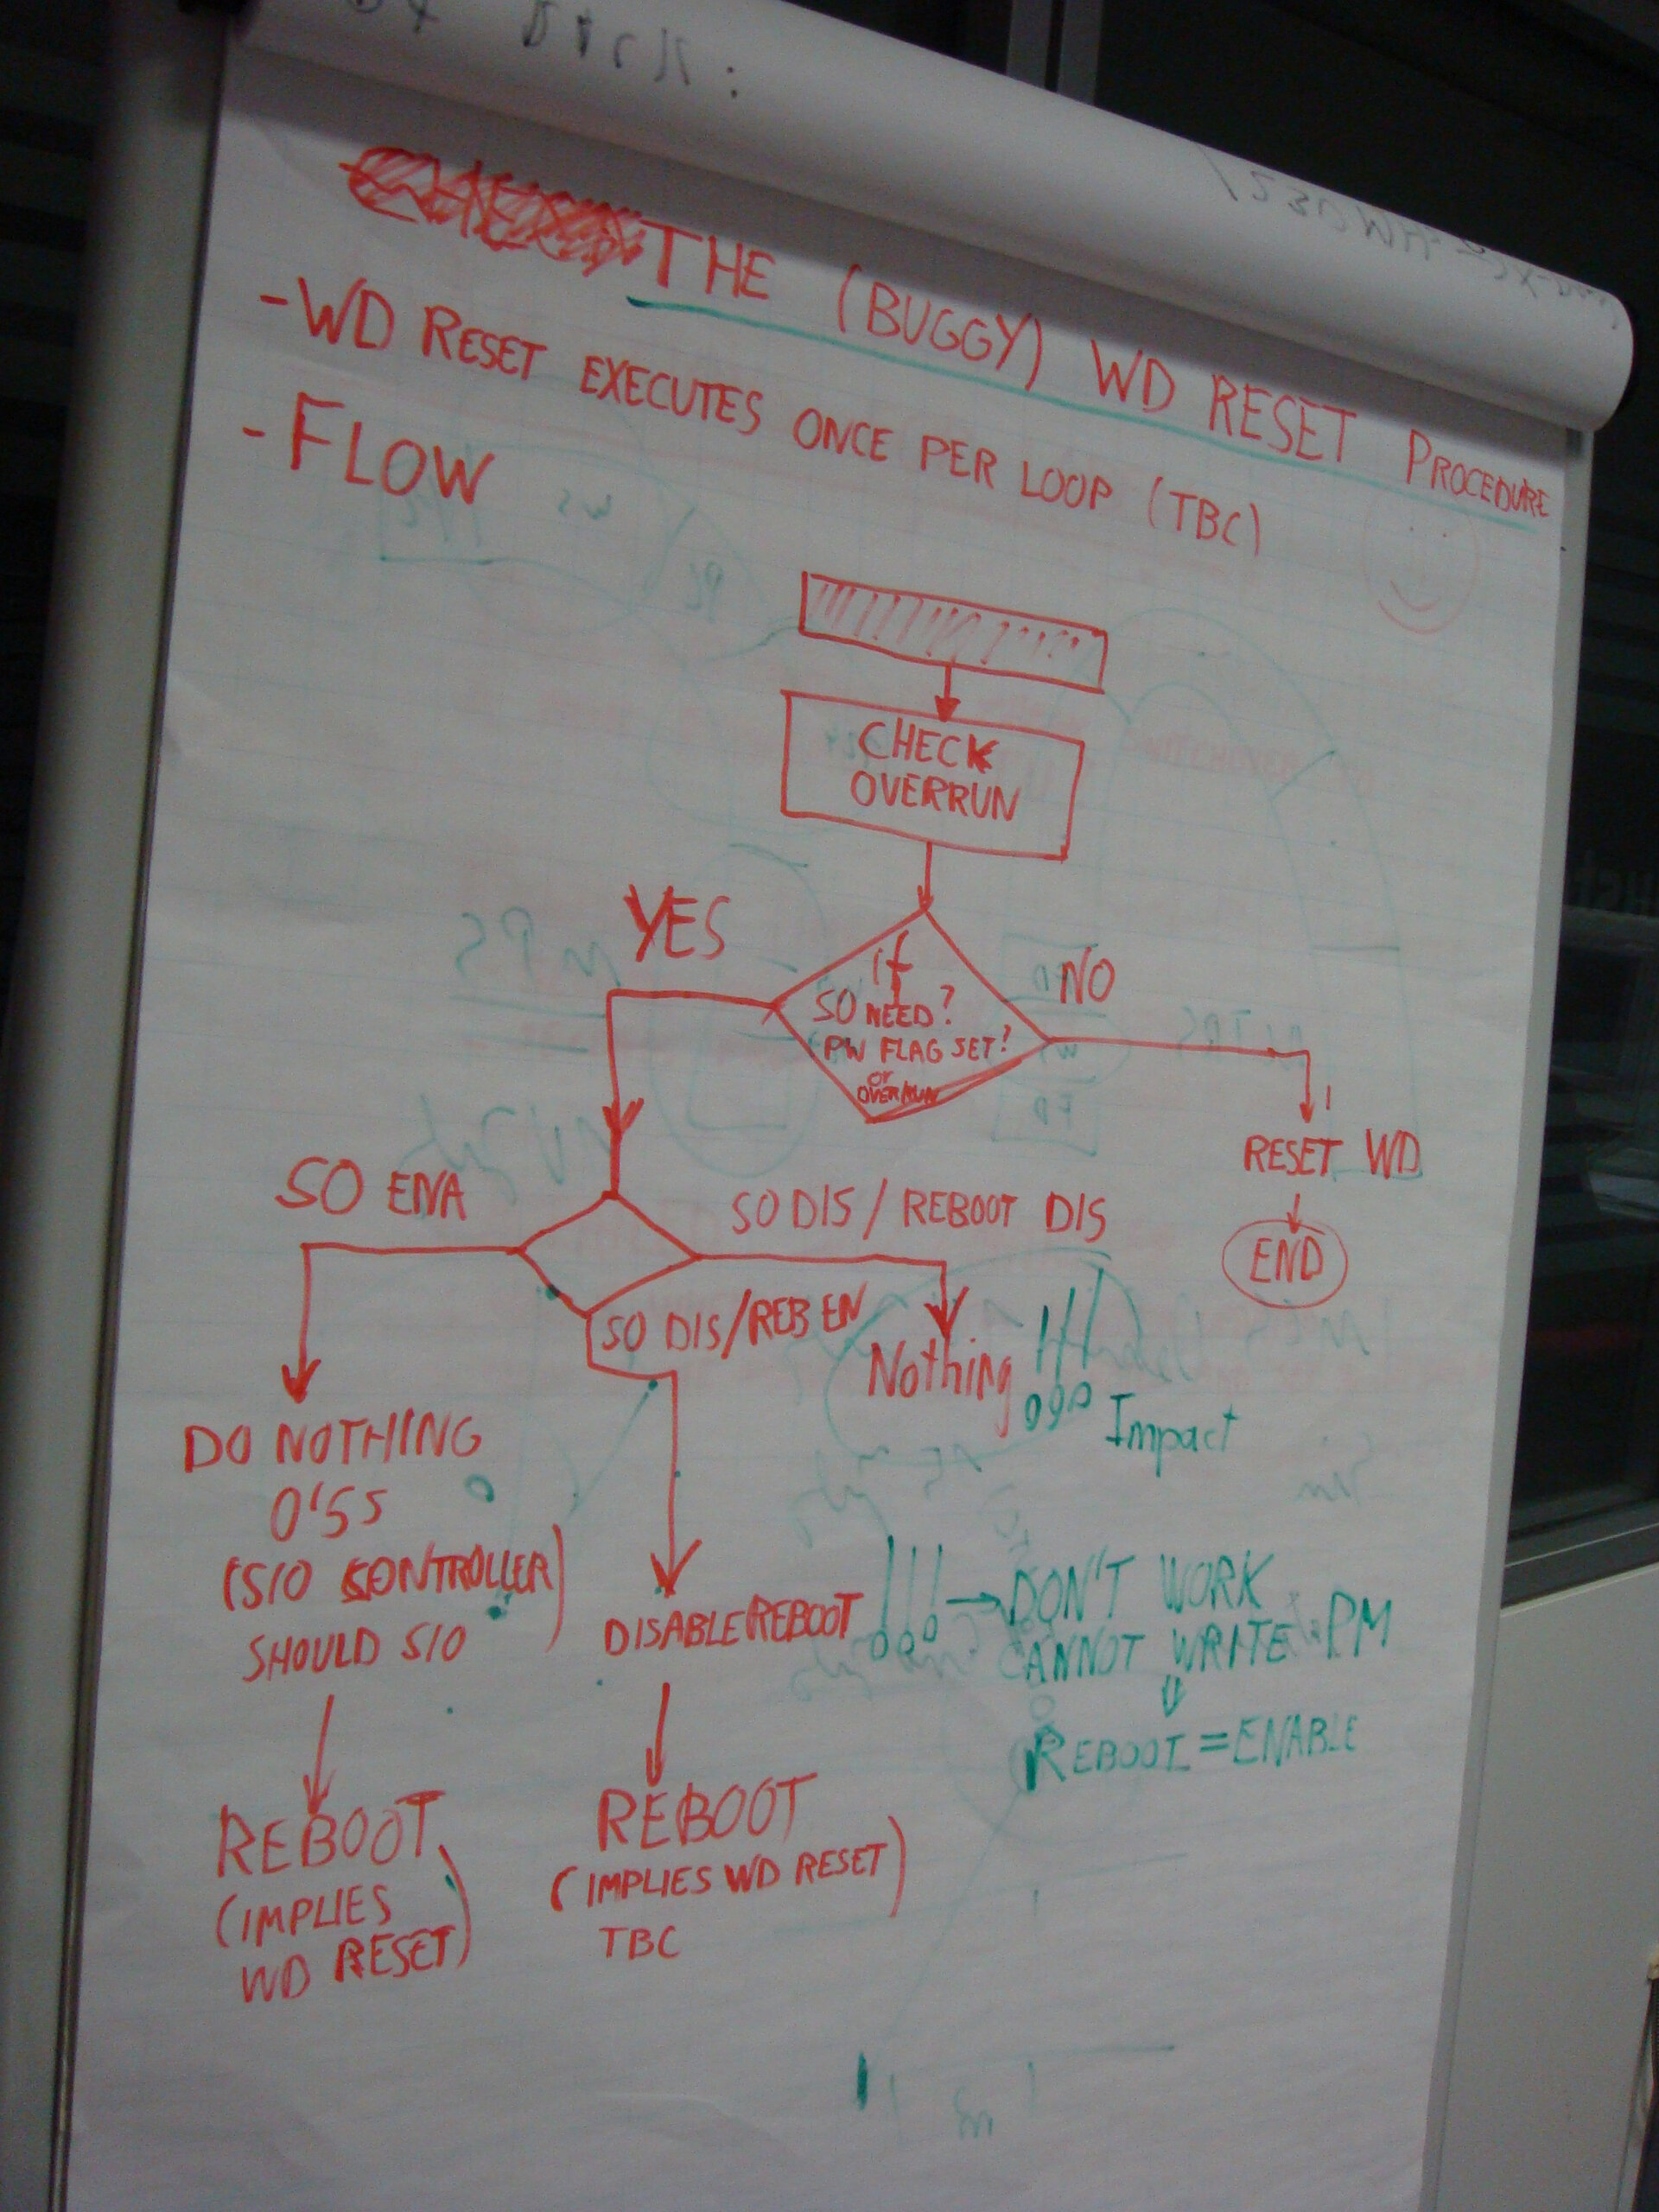 THE (BUGGY) WD RESET PROCEDURE
- WD RESET EXECUTES ONCE PER LOOP (TBC)
- FLOW
CHECK
OVERRUN
YES
if
SO NEED?
PW FLAG SET?
or
OVERRUN
NO
RESET WD
END
SO ENA
SO DIS / REBOOT DIS
SO DIS/REB EN
Nothing !!!
Impact
DO NOTHING
0'5s
(S/O CONTROLLER)
SHOULD S/O
DISABLE REBOOT
!!! → DON'T WORK
CANNOT WRITE PM
REBOOT = ENABLE
REBOOT
(IMPLIES
WD RESET)
REBOOT
(IMPLIES WD RESET)
TBC